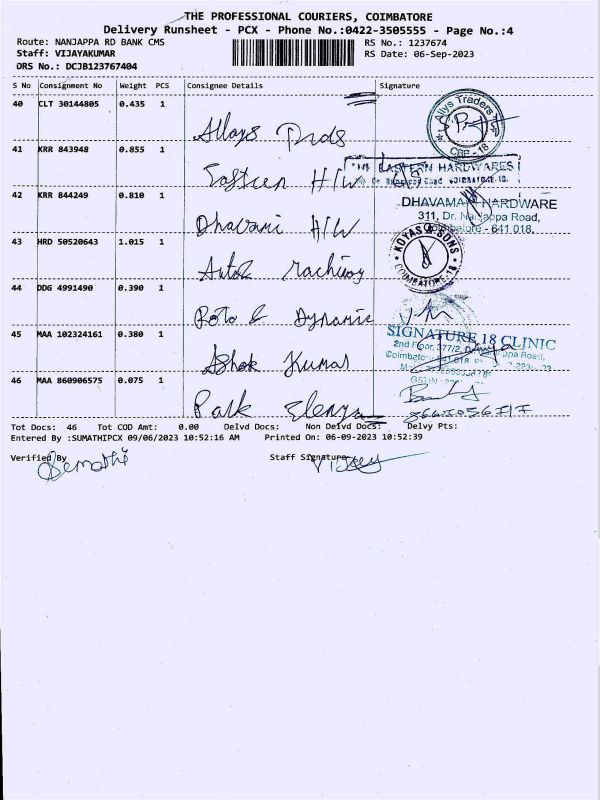 THE PROFESSIONAL COURIERS, COIMBATORE
Delivery Runsheet - PCX - Phone No.:0422-3505555 - Page No.:4
Route: NANJAPPA RD BANK CMS
Staff: VIJAYAKUMAR
DRS No.: DCJB123767404
RS No.: 1237674
RS Date: 06-Sep-2023
S No Consignment No Weight PCS Consignee Details Signature
40 CLT 30144805 0.435 1
Allays Trads
Allys Traders
CBE - 18
41 KRR 843948 0.855 1
Eastern H/W
EASTERN HARDWARES
42 KRR 844249 0.810 1
Dhavani H/W
DHAVAMANI HARDWARE
311, Dr. Nanjappa Road,
Coimbatore - 641 018.
43 HRD 50520643 1.015 1
KOYAS & SONS
COIMBATORE-18
44 DDG 4991490 0.390 1
Roto & Dynamic
45 MAA 102324161 0.380 1
Ashok Kumar
SIGNATURE 18 CLINIC
2nd Floor, 377/2, Dr. Nanjappa Road,
46 MAA 860906575 0.075 1
Park
Tot Docs: 46 Tot COD Amt: 0.00 Delvd Docs: Non Delvd Docs: Delvy Pts:
Entered By :SUMATHIPCX 09/06/2023 10:52:16 AM Printed On: 06-09-2023 10:52:39
Verified By
Sumathi
Staff Signature
Vijay